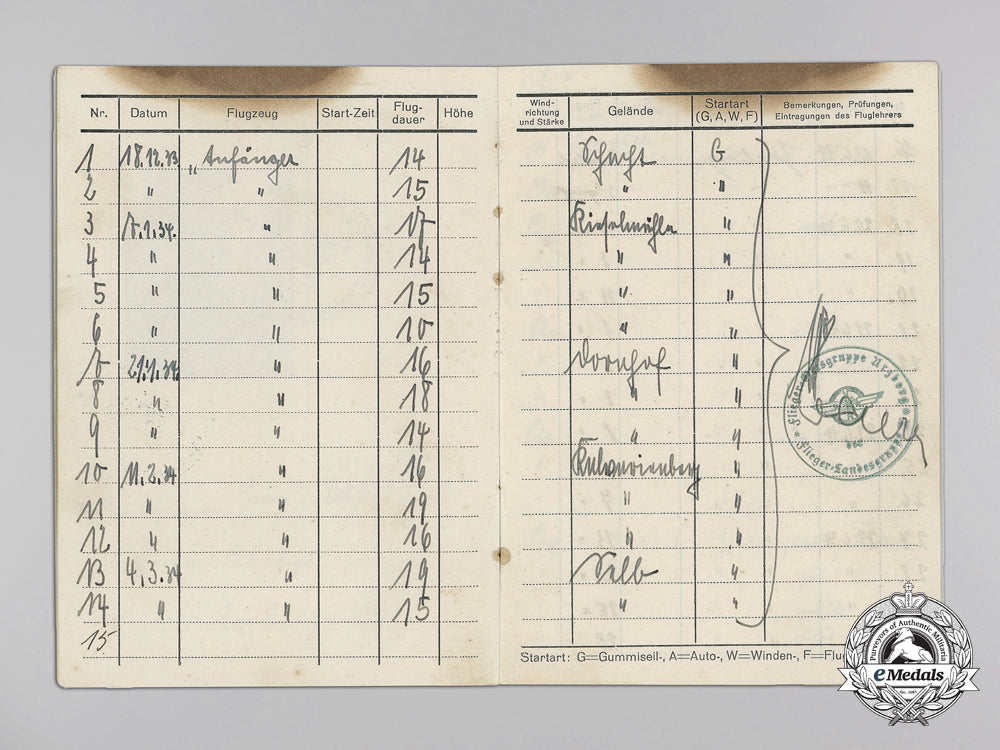 Nr. Datum Flugzeug Start-Zeit Flug-dauer Höhe Wind-richtung und Stärke Gelände Startart (G, A, W, F) Bemerkungen, Prüfungen, Eintragungen des Fluglehrers
1 18.12.33 „Anfänger 14 Schacht G
2 " " 15 " "
3 7.1.34. " 17 Kieselmühle "
4 " " 14 " "
5 " " 15 " "
6 " " 10 " "
7 21.1.34 " 16 Dornhof "
8 " " 18 " "
9 " " 14 " "
10 11.2.34 " 16 "
11 " " 19 " "
12 " " 16 " "
13 4.3.34 " 19 Selb "
14 " " 15 " "
15
Flieger-Ortsgruppe
der
Flieger-Landesgruppe
Startart: G=Gummiseil-, A=Auto-, W=Winden-, F=Flu
Purveyors of Authentic Militaria
eMedals